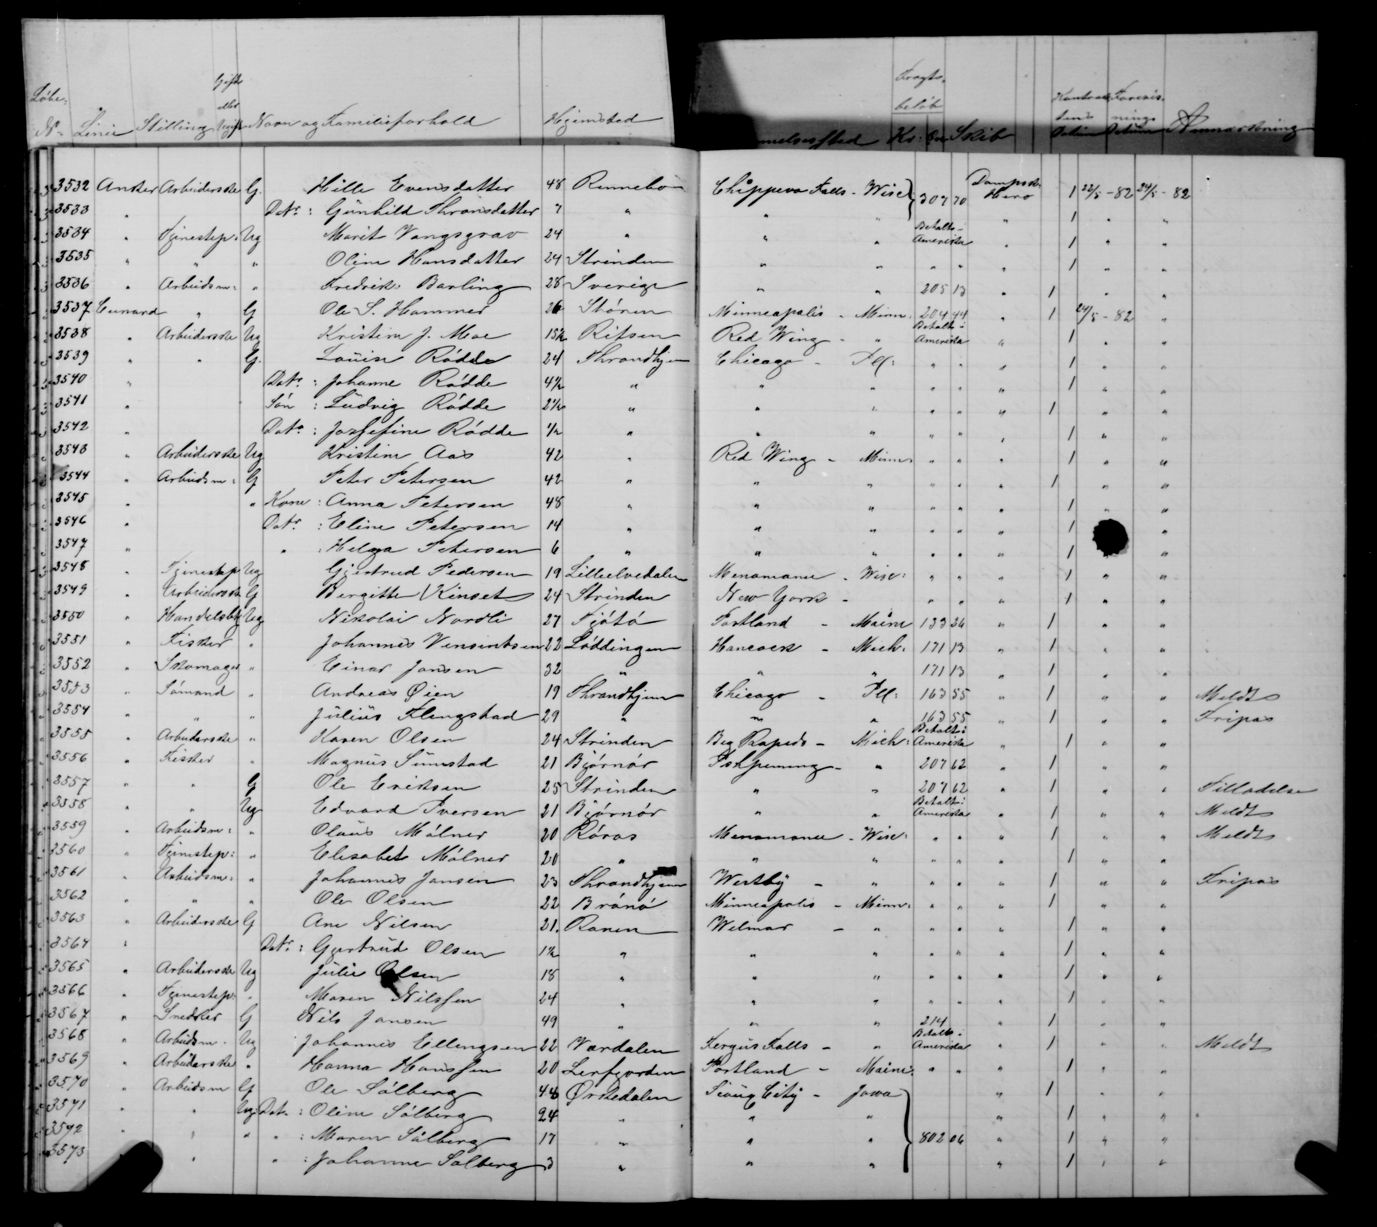 Løbe-
No Linie Stilling Gift eller Ugift Navn og Familieforhold Hjemsted melsessted Fragt- beløb Kr. Øre Skib Datum Datum Anmærkning
3532 Anchor Arbeiderske G. Hille Evensdatter 48 Rennebo Chippewa Falls - Wisc 307 70 Dampsk. Hero 1 22/5 - 82 24/5 - 82
3533 " Datr : Gunhild Thronsdatter 7 " " " 1 " "
3534 " Tjenestep: Ug Marit Vangsgrav 24 " " " Betalt: Amerika " 1 " "
3535 " " " Oline Hansdatter 24 Strinden " " " " 1 " "
3536 " Arbeidsm: " Fredrik Barling 28 Sverige " " 205 13 " 1 " "
3537 Cunard " G Ole S. Hammer 26 Støren Minneapolis - Minn: 204 44 " 1 24/5 - 82 "
3538 " Arbeiderske Ug Kristine J. Moe 15½ Rissen Red Wing - " Betalt: Amerika " 1 " "
3539 " " G. Louise Rødde 24 Throndhjem Chicago - Ill: " " " 1 " "
3540 " Datr : Johanne Rødde 4½ " " " " " " 1 " "
3541 " Søn : Ludvig Rødde 2½ " " " " " " 1 " "
3542 " Datr : Josefine Rødde ½ " " " " " " 1 " "
3543 " Arbeiderske Ug Kristine Aas 42 " Red Wing - Minn: " " " 1 " "
3544 " Arbeidsm: G Peter Petersen 42 " " " " " " 1 " "
3545 " " Kone : Anna Petersen 48 " " " " " " 1 " "
3546 " Datr : Eline Petersen 14 " " " " " " 1 "
3547 " " : Helga Petersen 6 " " " " " " 1 " "
3548 " Tjenestep Ug Gjertrud Pedersen 19 Lilleelvedalen Menomonee - Wisc: " " " 1 " "
3549 " Arbeiderske G Bergitte Kinset 24 Strinden New York - " " " 1 " "
3550 " Ug Nikolai Nordli 27 Tjøtø Portland - Maine 133 26 " 1 " "
3551 " Fisker " Johannes Vensentsen 22 Løddingen Hancock - Mich: 171 13 " 1 " "
3552 " Skomager " Einar Jansen 32 " " " 171 13 " 1 " "
3553 " Sømand " Andreas Øien 19 Throndhjem Chicago - Ill: 163 55 " 1 " " Meldt
3554 " " " Julius Klengstad 29 " " " 163 55 " 1 " " Fripas
3555 " Arbeiderske " Karen Olsen 24 Strinden Big Rapids - Mich: Betalt: Amerika " 1 " "
3556 " Fisker " Magnus Sumstad 21 Bjørnør Ishpeming - " 207 62 " 1 " "
3557 " " G Ole Eriksen 25 Strinden " " 207 62 " 1 " " Tilladelse
3558 " " Ug Edvard Iversen 21 Bjørnør " " Betalt: Amerika " 1 " " Meldt
3559 " Arbeidsm: " Olaus Mølner 20 Røros Menomonee - Wisc: " " " 1 " " Meldt
3560 " Tjenestep: " Elisabet Mølner 20 " " " " " " 1 " "
3561 " Arbeidsm: " Johannes Jansen 23 Throndhjem Westby - " " " " 1 " " Fripas
3562 " " " Ole Olsen 22 Brønø Minneapolis - Minn: " " " 1 " "
3563 " Arbeiderske G Ane Nilsen 21. Ranen Wilmar - " " " " 1 " "
3564 " Datr : Gjertrud Olsen 1½ " " " " " " 1 " "
3565 " Arbeiderske Ug Julie Olsen 18 " " " " " " 1 " "
3566 " Tjenestep: " Maren Nilssen 24 " " " " " " 1 " "
3567 " Snedker G Nils Jansen 49 " " " 214 " 1 " "
3568 " Arbeidsm. Ug Johannes Ellingsen 22 Værdalen Fergus Falls - " Betalt: Amerika " 1 " " Meldt
3569 " Arbeiderske " Hanna Hanssen 20 Portland - Maine: " " " 1 " "
3570 " Arbeidsm G Ole Sølberg 46 Ørkedalen Sioux City - Jowa " 1 " "
3571 " Ug Datr : Oline Sølberg 24 " " " " 1 " "
3572 " " " : Maren Sølberg 17 " " " 802 06 " 1 " "
3573 " " : Johanne Sølberg 3 " " " " 1 " "